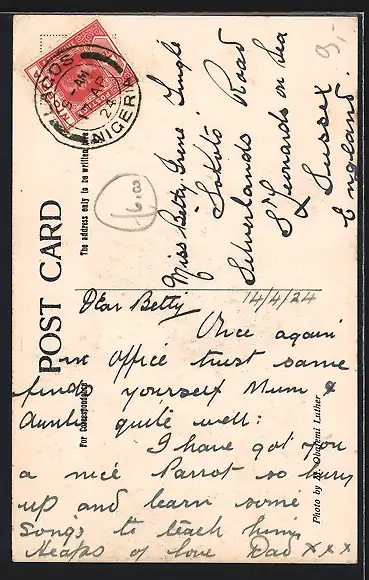 POST CARD
The address only to be written
For correspondence
Photo by Obafemi Luther
LAGOS
NIGERIA
AM
24
NIGERIA
9,-
16.00
Miss Betty Irene
"Sokoto"
Silverlands Road
St Leonards on Sea
Sussex
England.
14/4/24
Dear Betty
Once again
in office trust same
finds yourself Mum &
Auntie quite well:
I have got you
a nice Parrot so hurry
up and learn some
songs to teach him,
Heaps of love Dad xxx